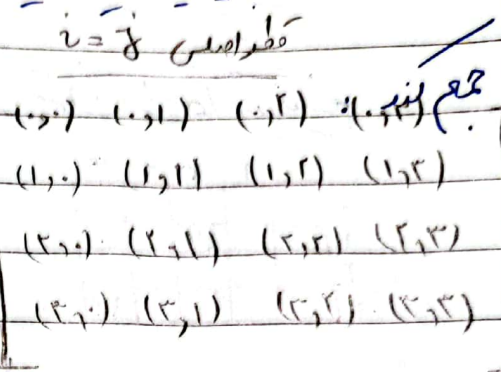 قطر اصلی i = j
جمع کنند:
(۰,۰) (۰,۱) (۰,۲) (۰,۳)
(۱,۰) (۱,۱) (۱,۲) (۱,۳)
(۲,۰) (۲,۱) (۲,۲) (۲,۳)
(۳,۰) (۳,۱) (۳,۲) (۳,۳)